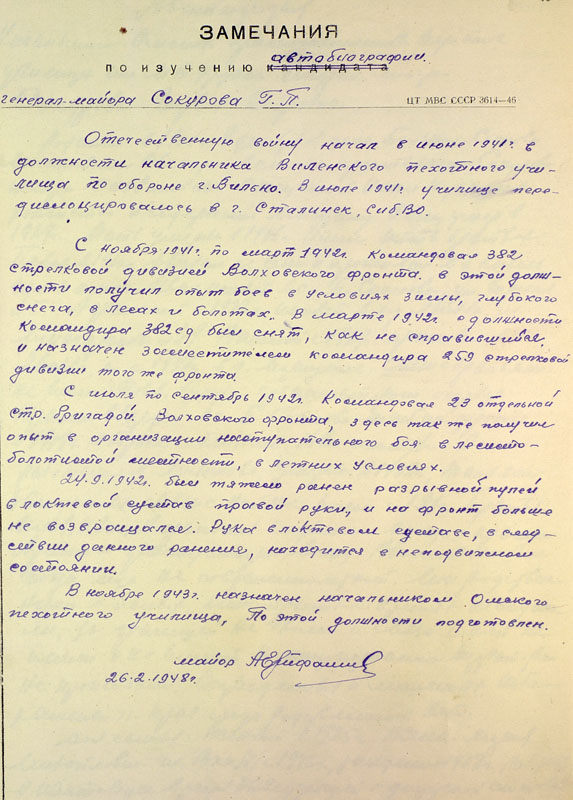 ЗАМЕЧАНИЯ
автобиографии.
по изучению кандидата
генерал-майора Сокурова Г.П. ЦТ МВС СССР 3614—46
Отечественную войну начал в июне 1941г в
должности начальника Виленского пехотного учи-
лища по обороне г. Вильно. В июле 1941г училище пере-
дислоцировалось в г. Сталинск, СибВО.
С ноября 1941г. по март 1942г. Командовал 382
стрелковой дивизией Волховского фронта. в этой долж-
ности получил опыт боев в условиях зимы, глубокого
снега, в лесах и болотах. В марте 1942г с должности
Командира 382 сд был снят, как не справившийся
и назначен заместителем командира 259 стрелковой
дивизии того же фронта.
С июля по сентябрь 1942г. Командовал 23 отдельной
стр. бригадой Волховского фронта, здесь так же получил
опыт в организации наступательного боя в лесисто-
болотистой местности, в летних условиях.
24.9.1942г. был тяжело ранен разрывной пулей
в локтевой сустав правой руки, и на фронт больше
не возвращался. Рука в локтевом суставе, в след-
ствии данного ранения, находится в неподвижном
состоянии.
В ноябре 1943г. назначен начальником Омского
пехотного училища, По этой должности подготовлен.
майор
26.2.1948г.